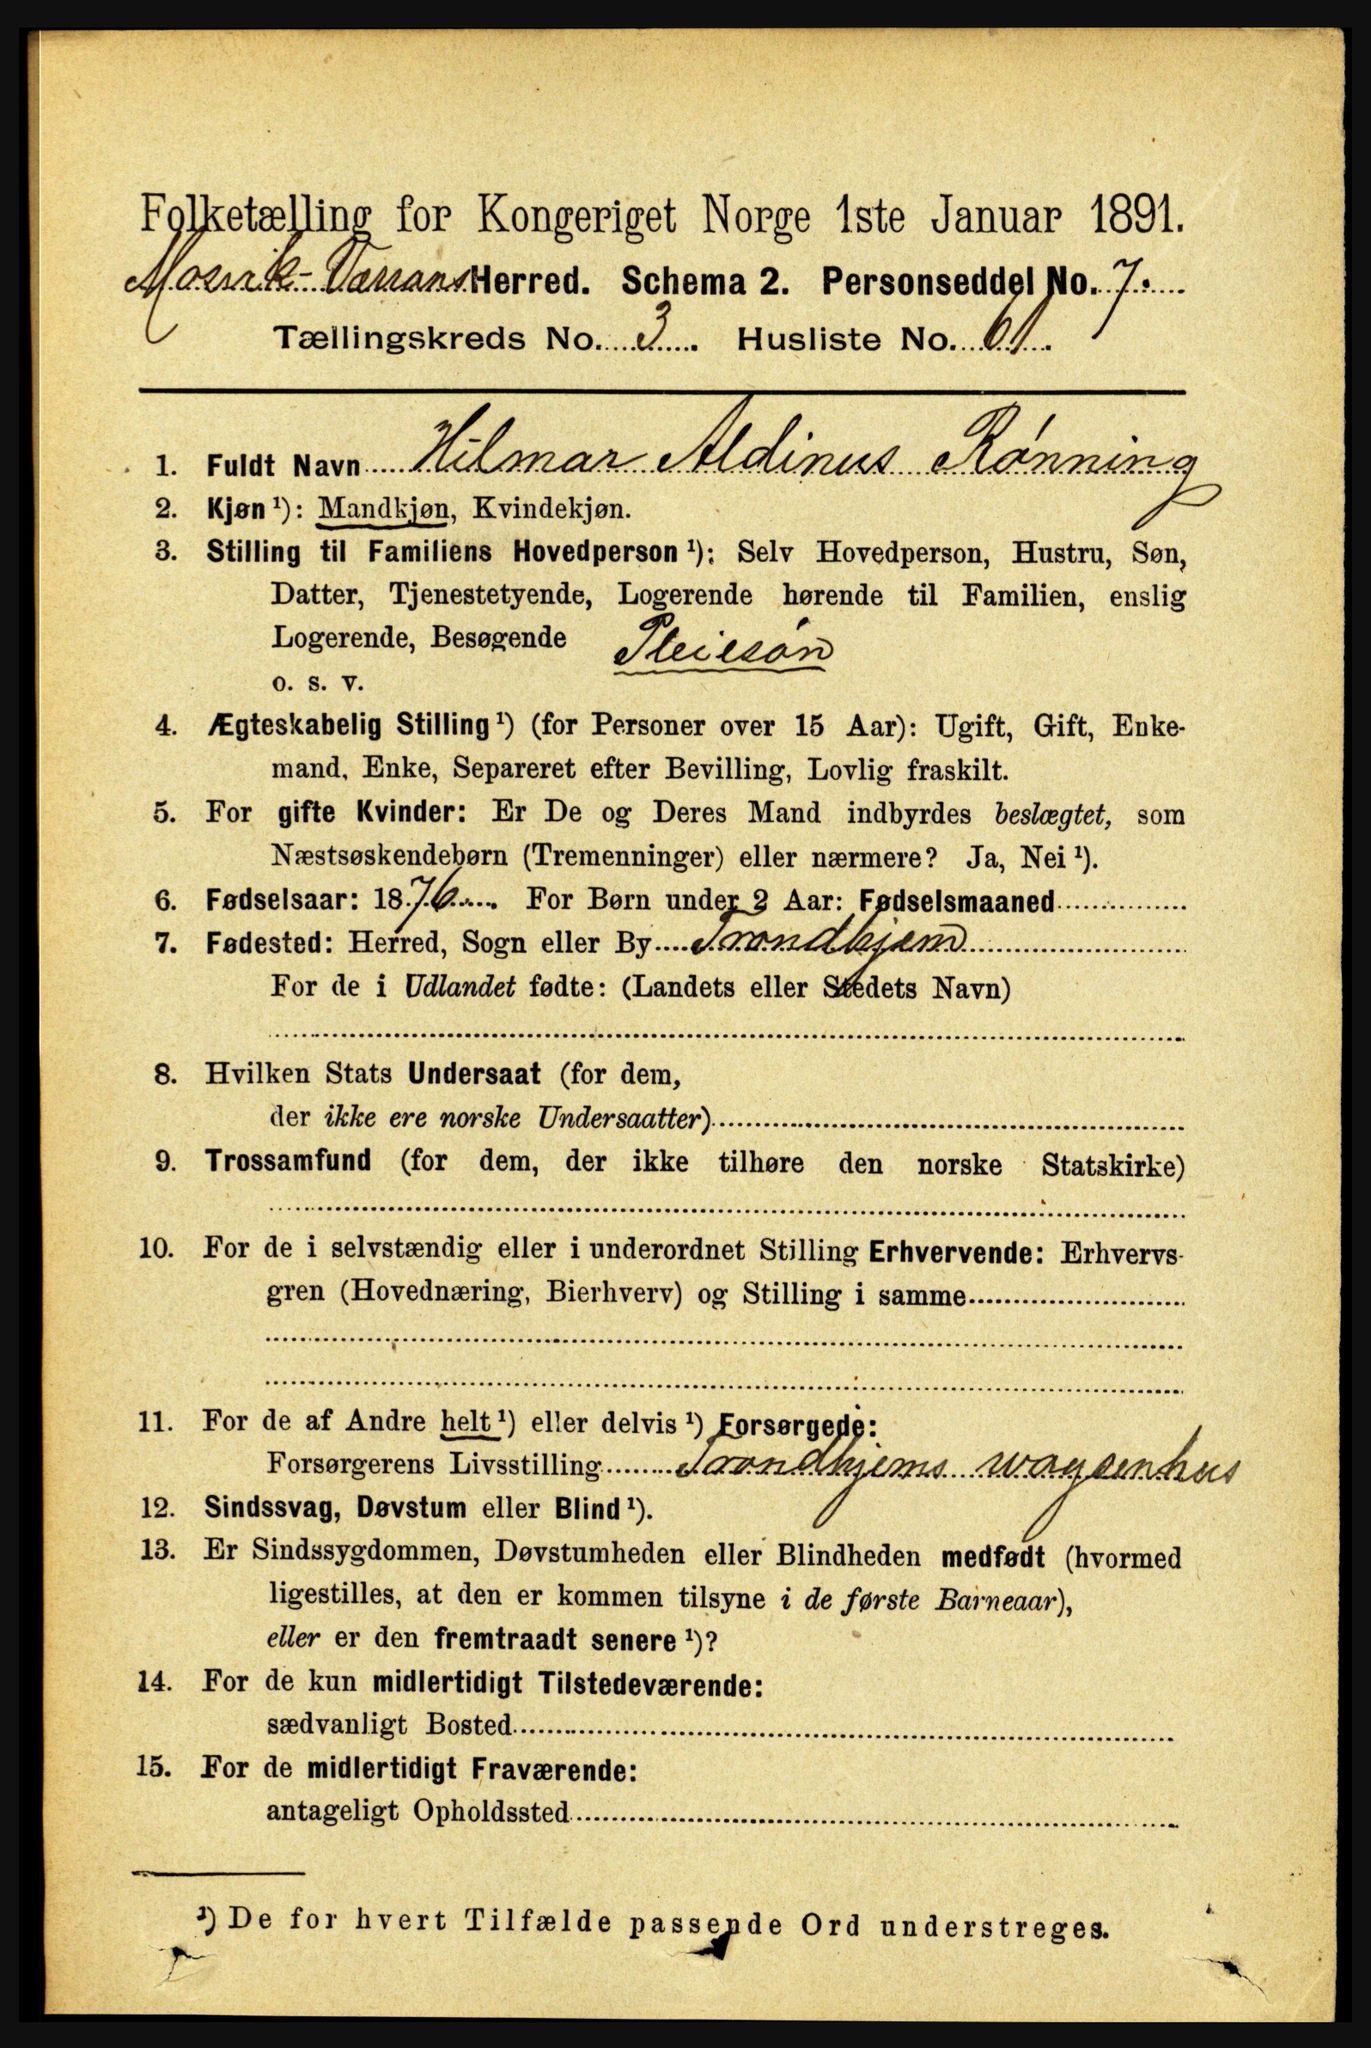 Folketælling for Kongeriget Norge 1ste Januar 1891.
Mosvik-Værrans Herred. Schema 2. Personseddel No. 7.
Tællingskreds No. 3. Husliste No. 61.
1. Fuldt Navn Hilmar Aldinus Rønning
2. Kjøn ¹): Mandkjøn, Kvindekjøn.
3. Stilling til Familiens Hovedperson ¹): Selv Hovedperson, Hustru, Søn,
Datter, Tjenestetyende, Logerende hørende til Familien, enslig
Logerende, Besøgende Pleiesøn
o. s. v.
4. Ægteskabelig Stilling ¹) (for Personer over 15 Aar): Ugift, Gift, Enke-
mand, Enke, Separeret efter Bevilling, Lovlig fraskilt.
5. For gifte Kvinder: Er De og Deres Mand indbyrdes beslægtet, som
Næstsøskendebørn (Tremenninger) eller nærmere? Ja, Nei ¹).
6. Fødselsaar: 1876. For Børn under 2 Aar: Fødselsmaaned
7. Fødested: Herred, Sogn eller By Trondhjem
For de i Udlandet fødte: (Landets eller Stedets Navn)
8. Hvilken Stats Undersaat (for dem,
der ikke ere norske Undersaatter)
9. Trossamfund (for dem, der ikke tilhøre den norske Statskirke)
10. For de i selvstændig eller i underordnet Stilling Erhvervende: Erhvervs-
gren (Hovednæring, Bierhverv) og Stilling i samme
11. For de af Andre helt ¹) eller delvis ¹) Forsørgede:
Forsørgerens Livsstilling Trondhjems waysenhus
12. Sindssvag, Døvstum eller Blind ¹).
13. Er Sindssygdommen, Døvstumheden eller Blindheden medfødt (hvormed
ligestilles, at den er kommen tilsyne i de første Barneaar),
eller er den fremtraadt senere ¹)?
14. For de kun midlertidigt Tilstedeværende:
sædvanligt Bosted
15. For de midlertidigt Fraværende:
antageligt Opholdssted
¹) De for hvert Tilfælde passende Ord understreges.